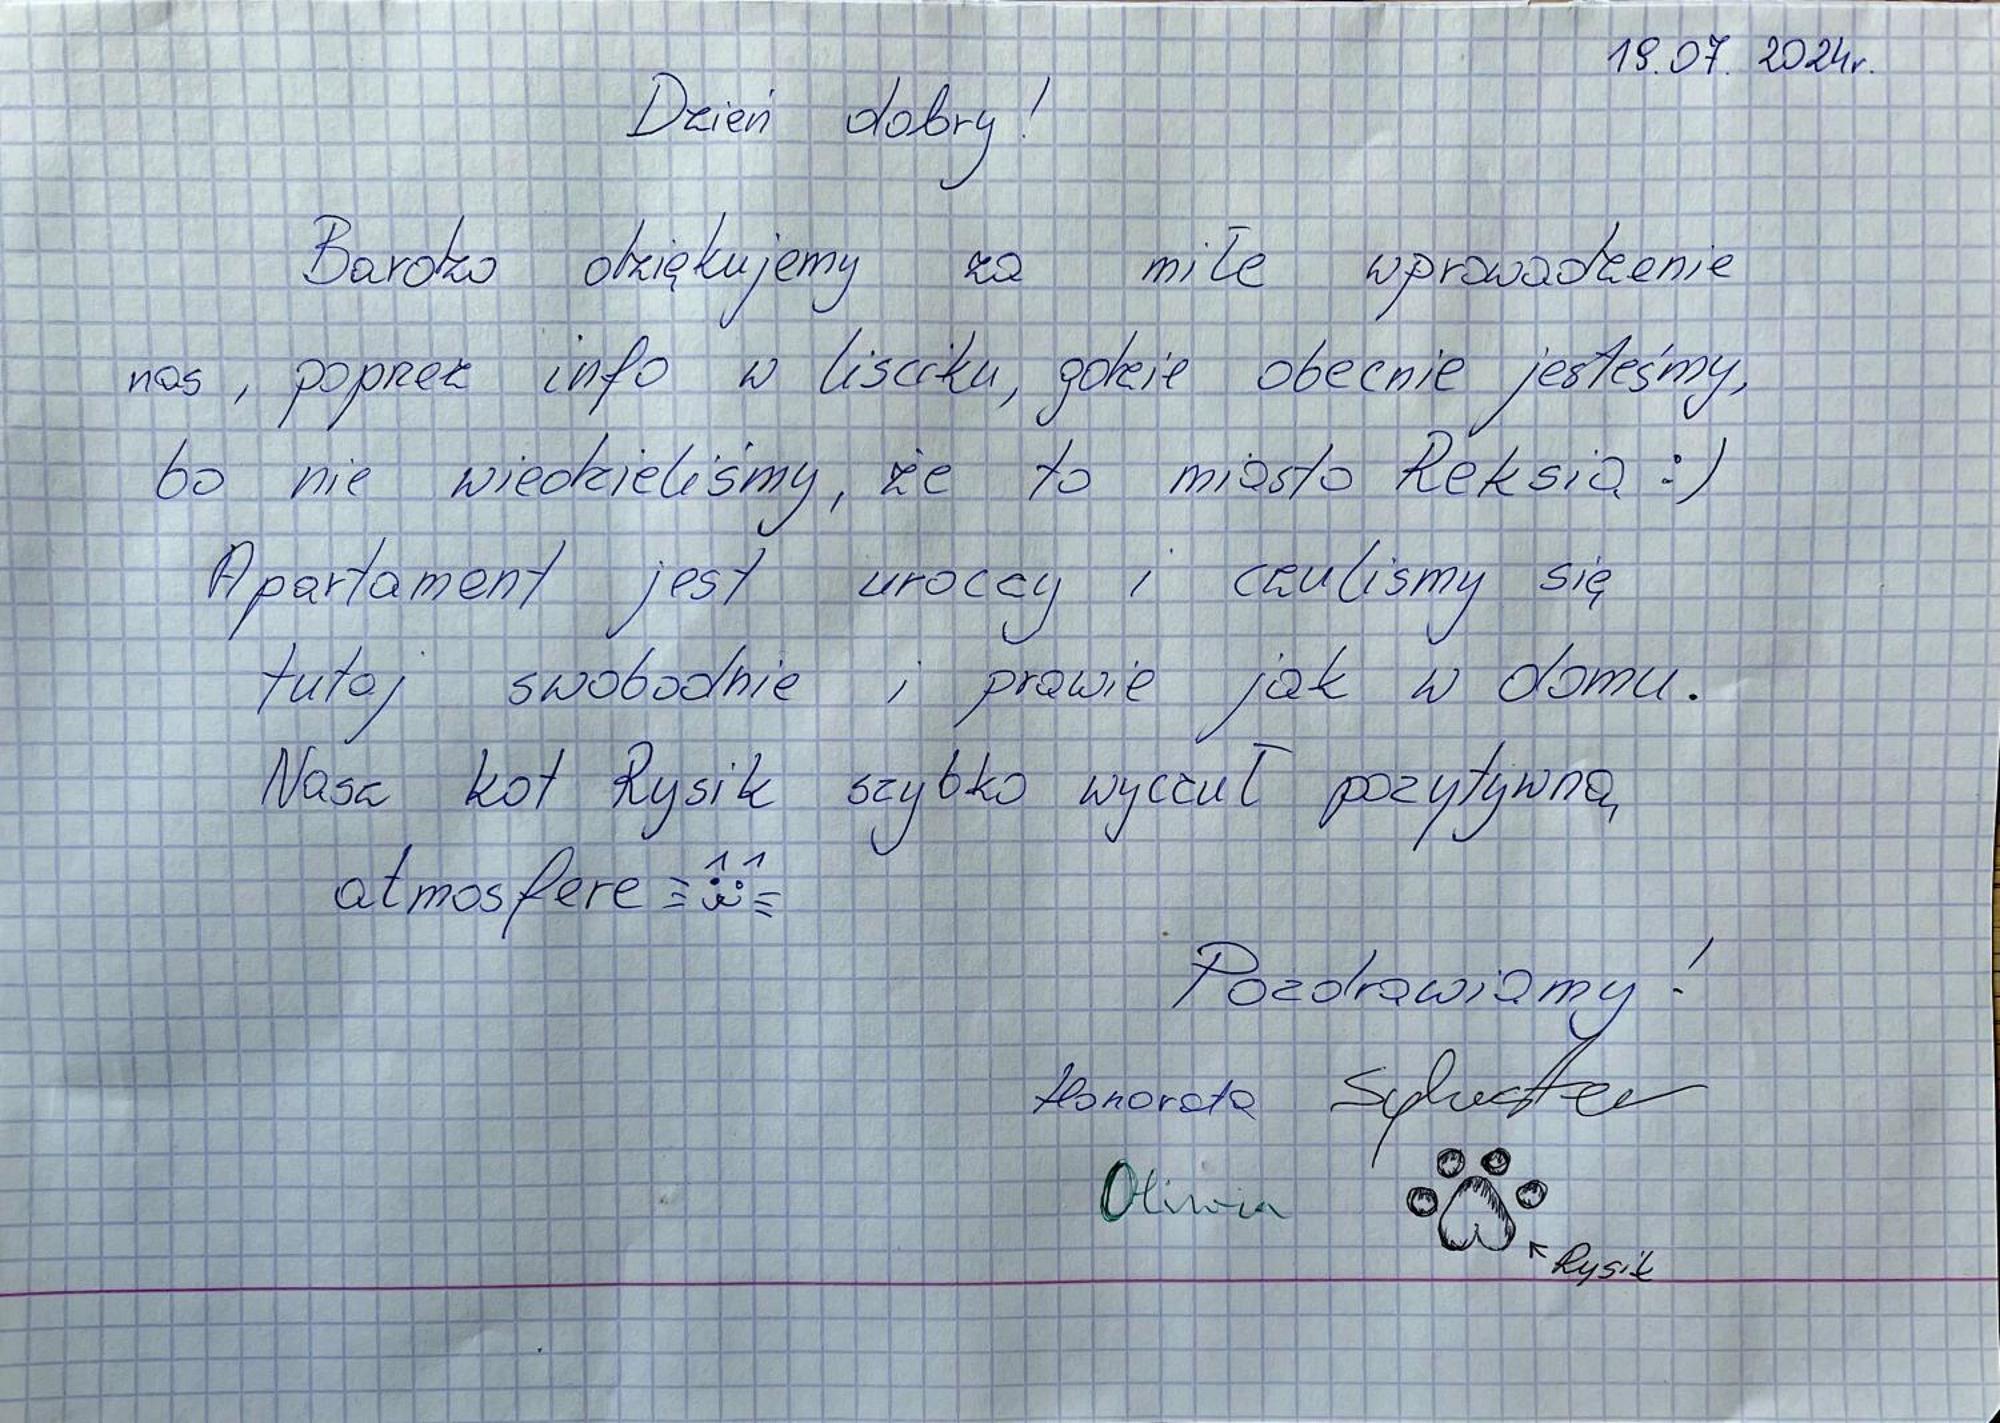 19.07.2024r.
Dzień dobry!
Bardzo dziękujemy za miłe wprowadzenie
nas, poprzez info w lisciku, gdzie obecnie jesteśmy,
bo nie wiedzieliśmy, że to miasto Reksia :)
Apartament jest uroczy i czulismy się
tutaj swobodnie i prawie jak w domu.
Nasz kot Rysik szybko wyczuł pozytywną
atmosfere
Pozdrawiamy!
Honorata Sylwester
Oliwia
Rysik